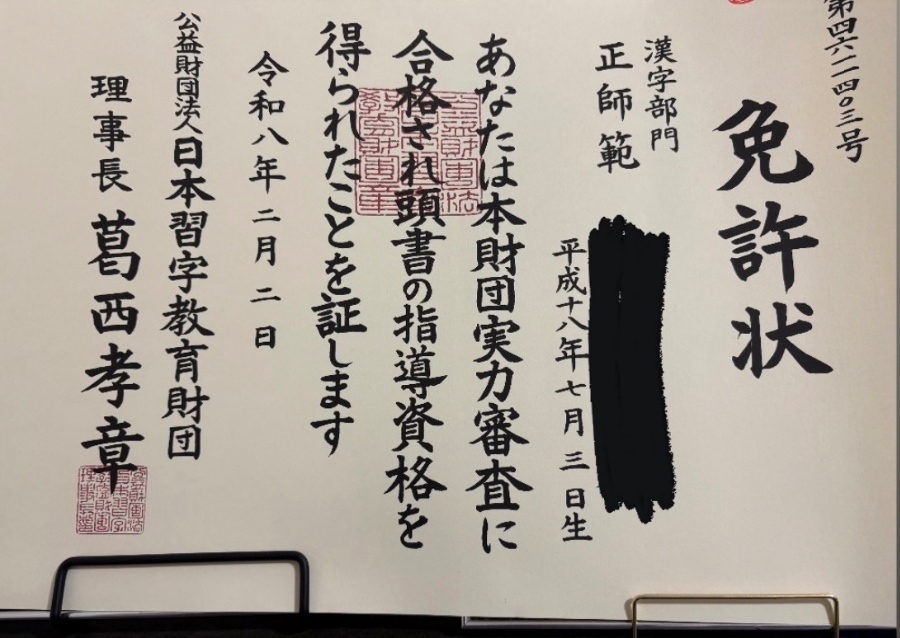 第四六二四〇三号
免許状
漢字部門
正師範
平成十八年七月三日生
あなたは本財団実力審査に
合格され頭書の指導資格を
得られたことを証します
令和八年二月二日
公益財団法人日本習字教育財団
理事長 葛西孝章